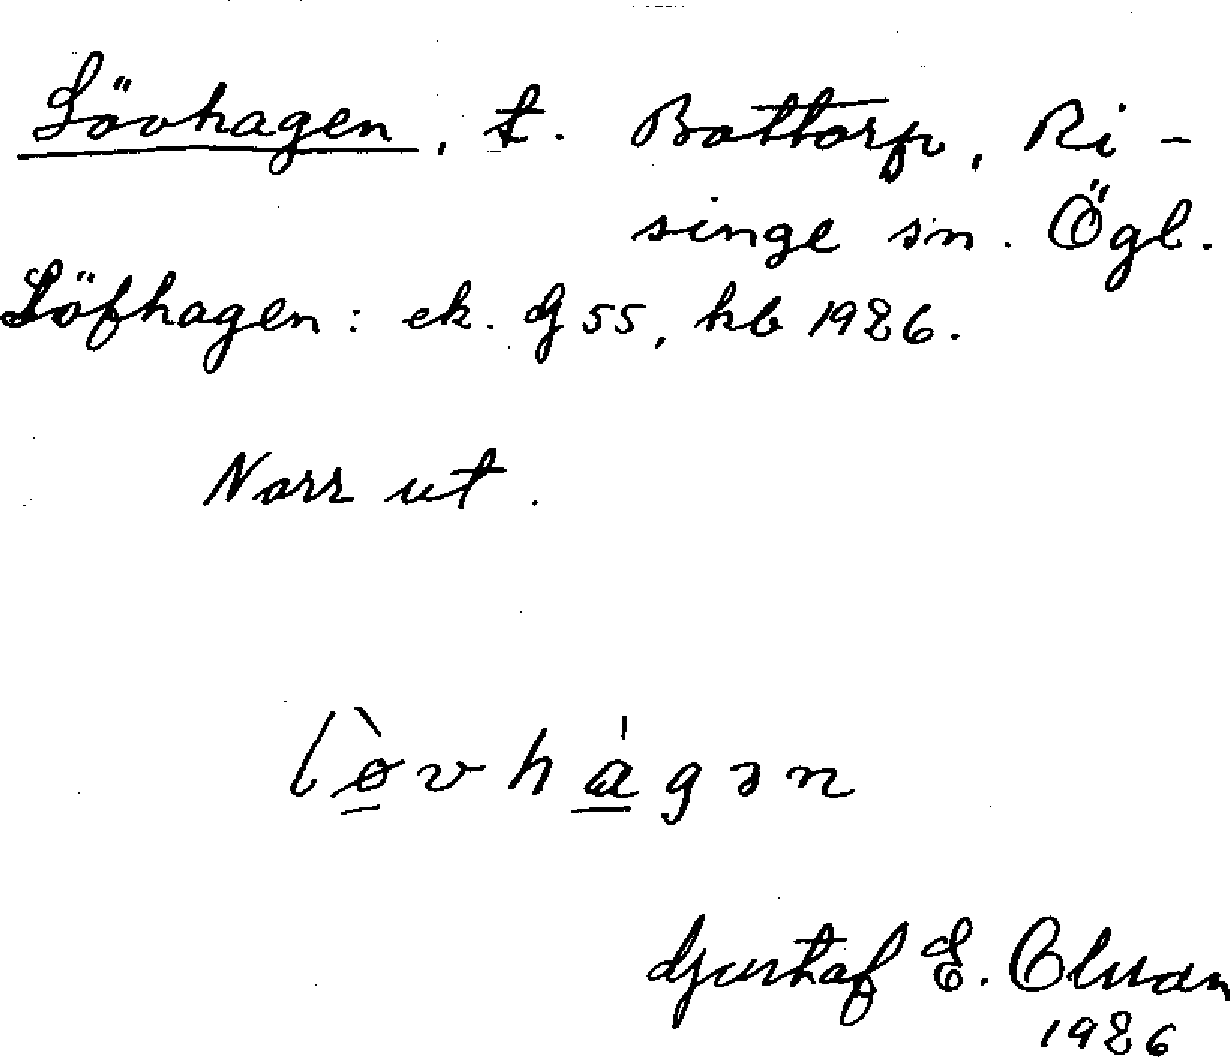 Lövhagen, t. Bottorp, Ri-
singe sn. Ögl.
Löfhagen: ek. G 55, hb 1926.
Norr ut.
lø̀vhágən
Gustaf E. Olsson
1926